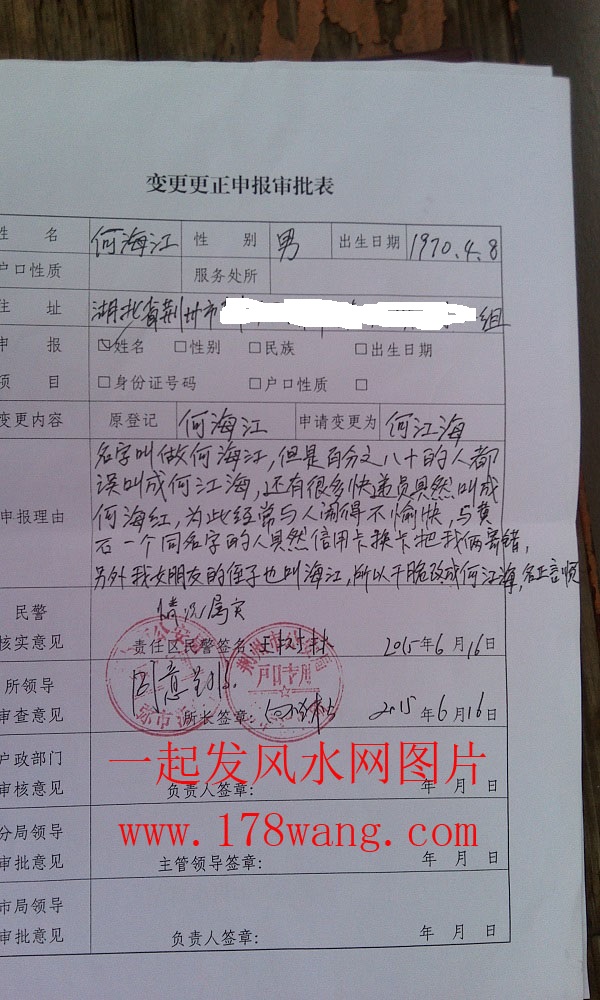 变更更正申报审批表
姓 名 何海江 性 别 男 出生日期 1970.4.8
户口性质 服务处所
住 址 湖北省荆州市 组
申 报 ☑姓名 □性别 □民族 □出生日期
项 目 □身份证号码 □户口性质 □
变更内容 原登记 何海江 申请变更为 何江海
申报理由
名字叫做何海江,但是百分之八十的人都
误叫成何江海,还有很多快递员具然叫成
何海红,为此经常与人闹得不愉快,与黄
石一个同名字的人具然信用卡换卡把我俩寄错,
另外我女朋友的侄子也叫海江,所以干脆改成何江海,名正言顺
民警 情况属实
核实意见 责任区民警签名: 2015年6月16日
所领导 同意
审查意见 所长签章: 2015年6月16日
户政部门
审核意见 负责人签章: 年 月 日
一起发风水网图片
分局领导
www.178wang.com
审批意见 主管领导签章: 年 月 日
市局领导
审批意见 负责人签章: 年 月 日